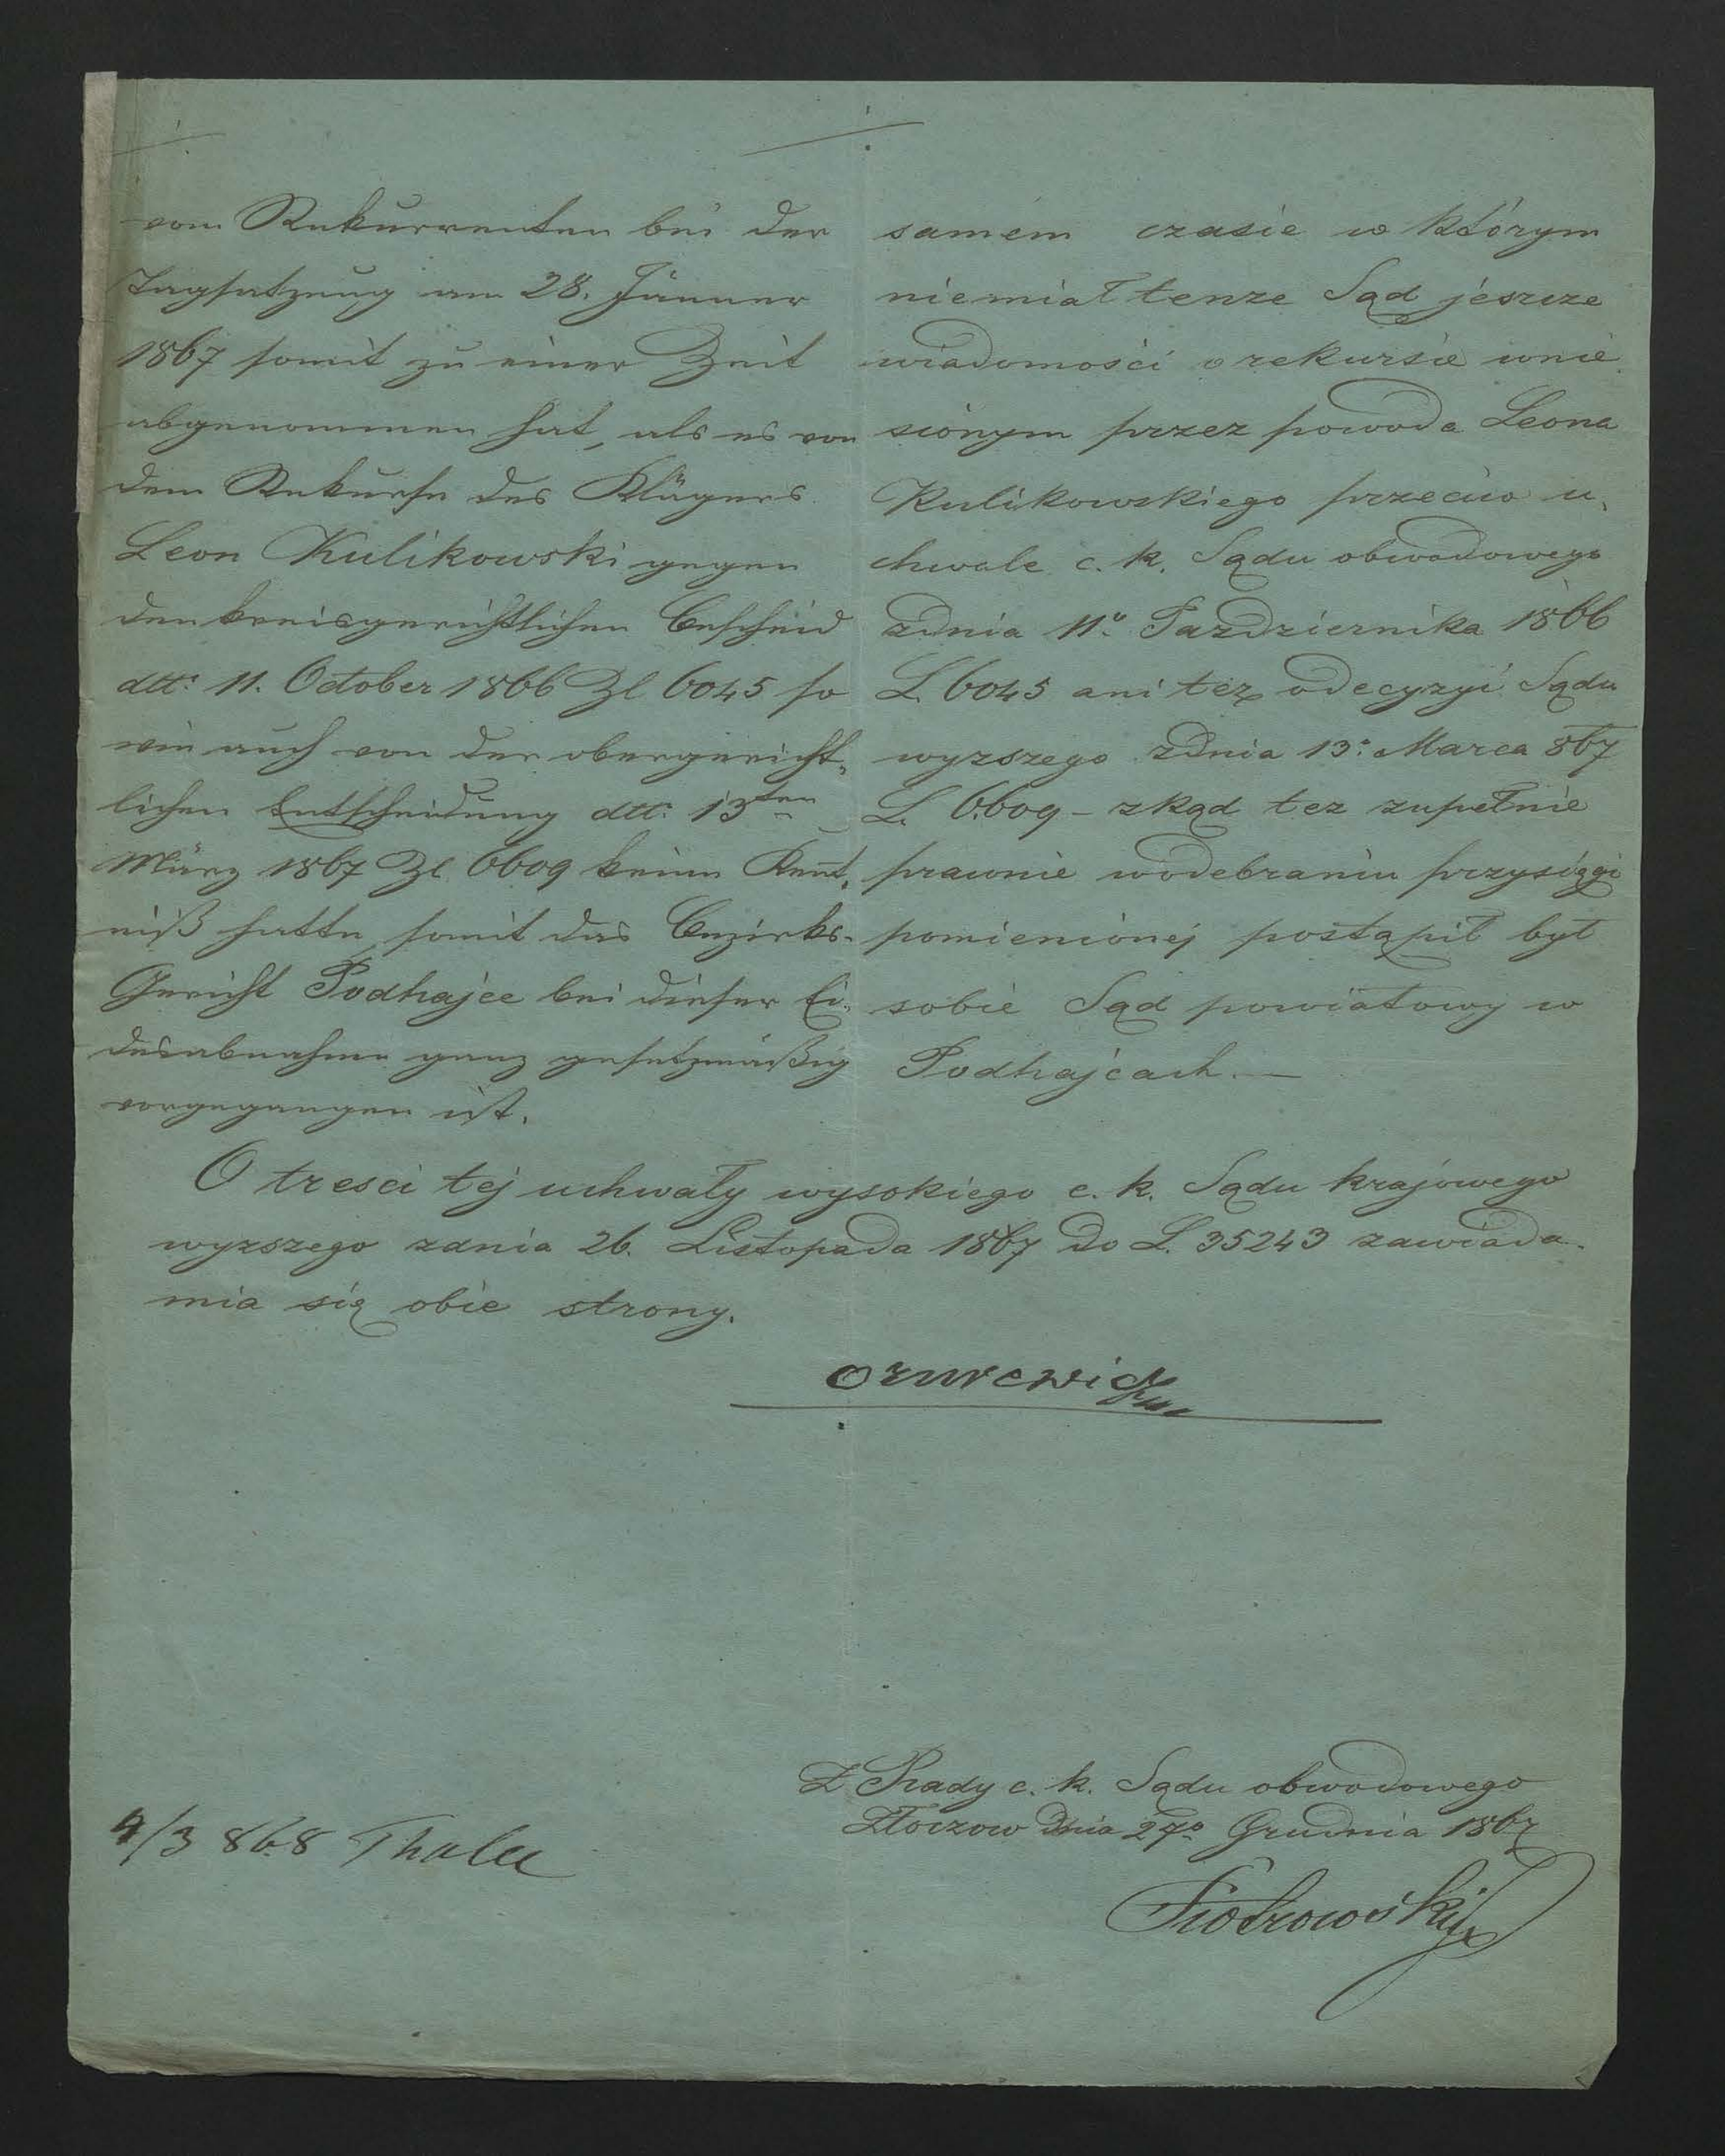 vom Rekurrenten bei der
Tagsatzung am 28. Jänner
1867 somit zu einer Zeit
abgenommen hat, als es von
dem Rekurse des Klägers
Leon Kulikowski gegen
den kreisgerichtlichen Bescheid
dtto: 11. October 1866 Zl 6045 so
wie auch von der obergericht„
lichen Entscheidung dtto: 13ten
März 1867 Zl 6609 keine Kent„
niß hatte, somit das Bezirks-
Gericht Podhajce bei dieser Ei„
desabnahme ganz gesetzmäßig
vorgegangen ist.
samém czasie w którym
niemiał tenze Sąd jeszcze
wiadomości o rekursie wnie
sionym przez powoda Leona
Kulikowskiego przeciw u„
chwale c. k. Sądu obwodowego
zdnia 11o. Pazdziernika 1866
L. 6045 ani tez o decyzyi Sądu
wyzszego zdnia 13o. Marca 867
L. 6609 – zkąd tez zupełnie
prawnie wodebraniu przysięgi
pomienionej postąpił był
sobie Sąd powiatowy w
Podhajcach. —
O tresci tej uchwały wysokiego c. k. Sądu krajowego
wyzszego zdnia 26. Listopada 1867 do L. 35243 zawiada-
mia się obie strony.
Z Rady c. k. Sądu obwodowego
Złoczow dnia 27o. Grudnia 1867
4/3 868
Piotrowski